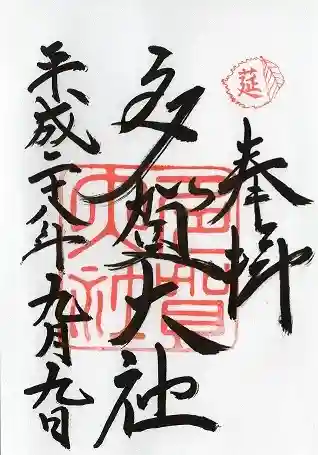 莚
奉拝
多賀大社
多賀大社
平成二十八年九月九日